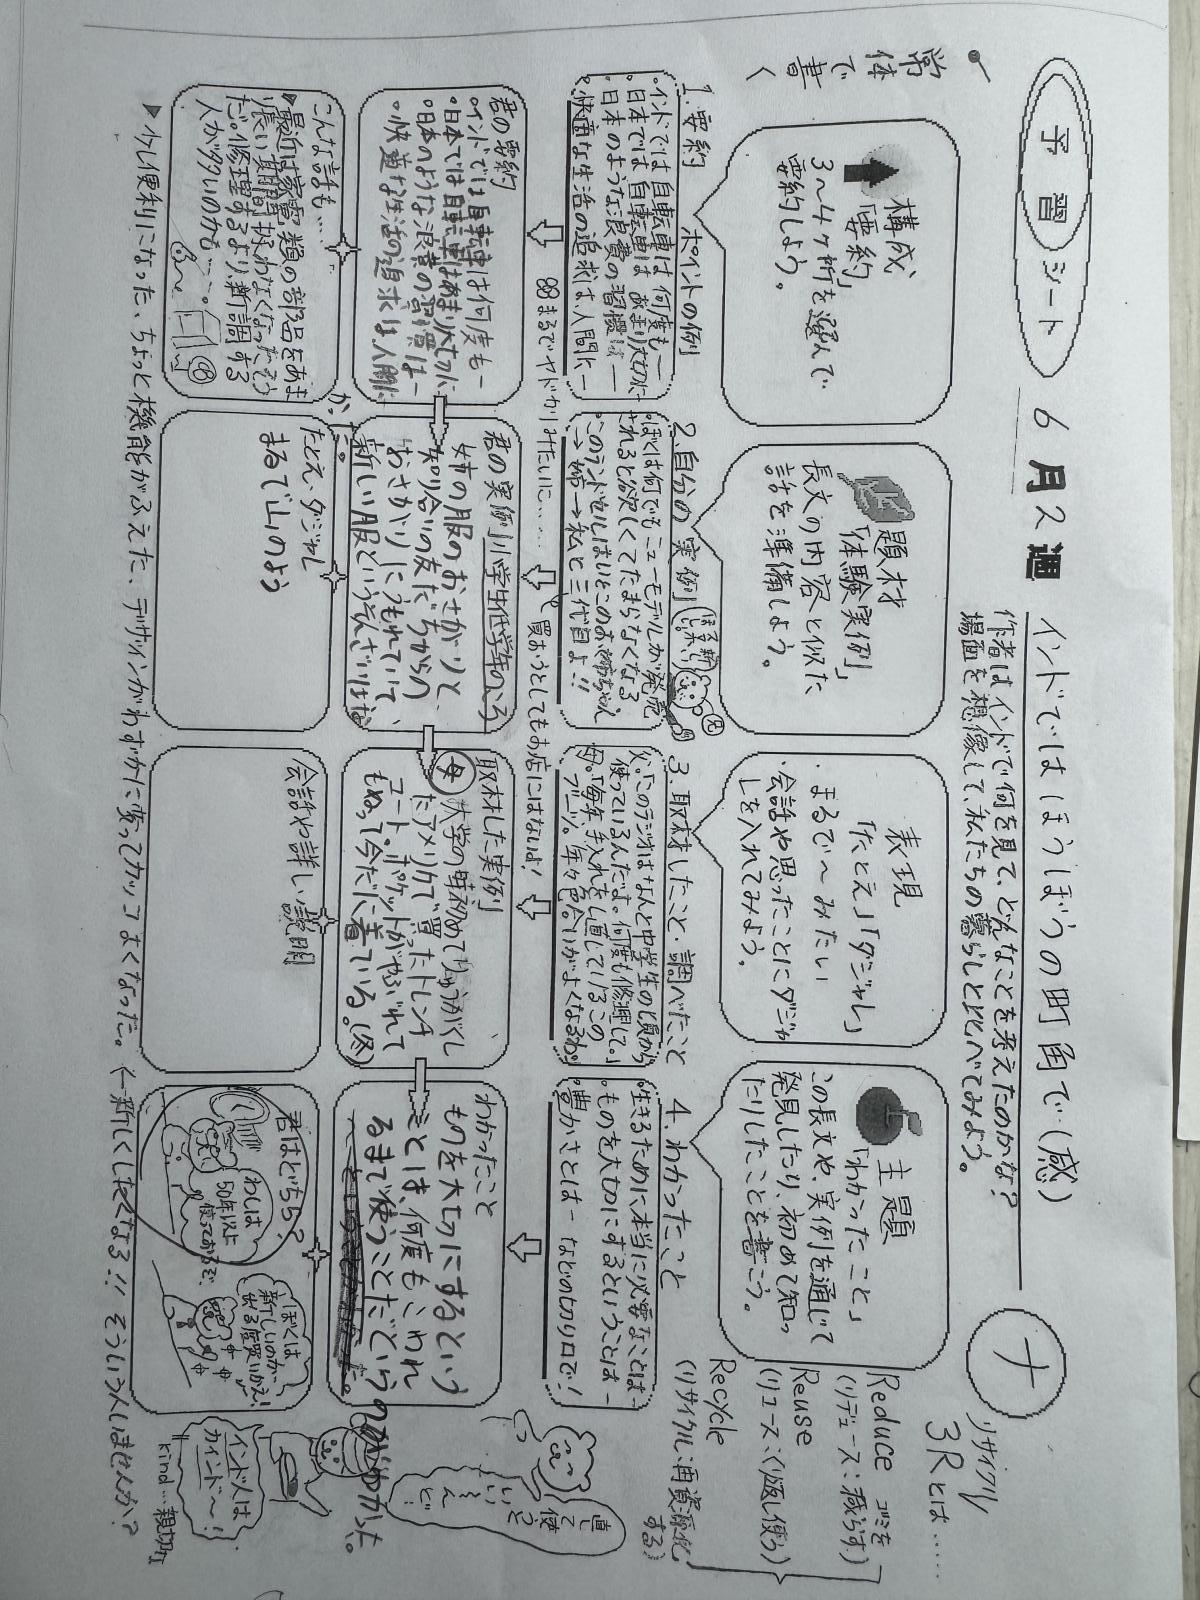 予習シート
6月2週
インドではほうぼうの町角で…(感)
ナ
作者はインドで何を見て、どんなことを考えたのかな?
場面を想像して、私たちの暮らしと比べてみよう。
リサイクル
3Rとは……
Reduce ゴミを
(リデュース:減らす)
Reuse
(リユース:くり返し使う)
Recycle
(リサイクル:再資源化
する)
常体
で
書
く
構成
「要約」
3~4ヶ所を選んで
要約しよう。
題材
「体験実例」
長文の内容と似た
話を準備しよう。
表現
「たとえ」「ダジャレ」
まるで~みたい
会話や思ったことにダジャ
レを入れてみよう。
主題
「わかったこと」
この長文や、実例を通して
発見したり、初めて知っ
たりしたことを書こう。
1.要約 ポイントの例
・インドでは自転車は何度も―
・日本では自転車はあまり大切に―
・日本のような浪費の習慣は―
・快適な生活の追求は、人間に―
2.自分の実例
ぼくは何でもニューモデルが発売
されると欲しくてたまらなくなる
・このランドセルはいとこのお姉ちゃん
→姉→私と三代目よ!!
3.取材したこと・調べたこと
父「このラジオはなんと中学生の頃から
使っているんだよ。何度も修理して。」
母「毎年、手入れをし直しているこの
ブーツ。年々色合いがよくなるわ。」
4.わかったこと
・生きるために本当に必要なことは―
・ものを大切にするということは―
・豊かさとは― などの切り口で!
まるでヤドカリみたいに……
買おうとしてもお店にはないよ!
直して
使うと
いい
けど!
君の要約
・インドでは自転車は何度も―
・日本では自転車はあまり大切に
・日本のような浪費の習慣は―
・快適な生活の追求は人間に
君の実例 小学生低学年のころ
姉の服のおさがりと、
知り合いの友だちからの
おさがりにうもれていて、
新しい服というそんざいはな
かった。
取材した実例
母 大学の時初めてりゅうがくし
たアメリカで買ったトレンチ
コート、ポケットがやぶれて
もぬって今だに着ている。(冬)
わかったこと
ものを大切にするという
ことは、何度もこわれ
るまで使うことだという
のがわかった。
こんな話も……
▶最近は家電類の部品をあま
り長い期間扱わなくなったそう
だ。修理するより、新調する
人が多いのかも……。
たとえ・ダジャレ
まるで山のよう
会話や詳しい説明
君はどちら?
わしは
50年以上
使っておるぞ、
ぼくは
新しいのが
出る度買いかえ!
インド人は
カインド~!
kind…親切な
▶少し便利になった、ちょっと機能がふえた、デザインがわずかに変ってカッコよくなった。(→新しくしたくなる!! そういう人いませんか?